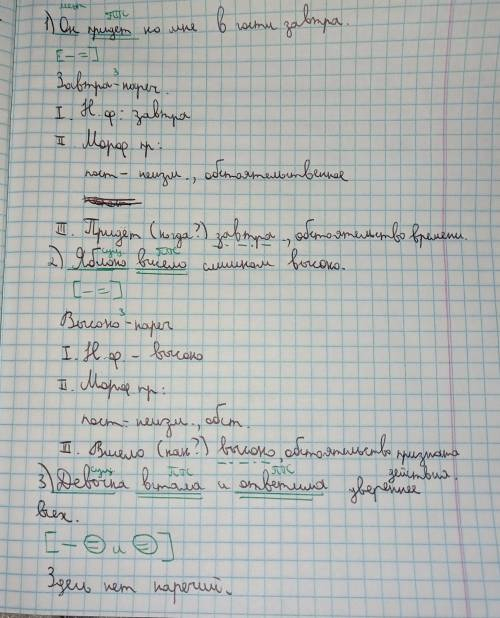 мест. ПГС
1) Он придет ко мне в гости завтра.
[- =]
Завтра³-нареч.
I. Н.ф: завтра
II Морф пр:
пост- неизм., обстоятельственное
III. Придет (когда?) завтра, обстоятельство времени.
сущ ПГС
2) Яблоко висело слишком высоко.
[- =]
Высоко³-нареч
I. Н.ф - высоко
II. Морф пр:
пост- неизм., обст.
III. Висело (как?) высоко, обстоятельство признака
действия.
сущ ПГС ПГС
3) Девочка встала и ответила увереннее
всех.
[- = и =]
Здесь нет наречий.